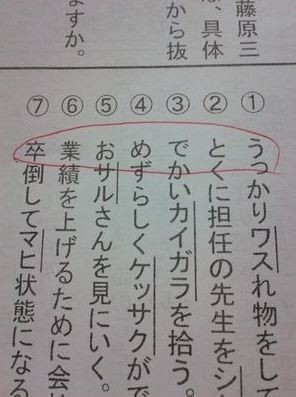 藤原三
、具体
から抜
ますか。
① うっかりワスれ物をして
② とくに担任の先生をシ
③ でかいカイガラを拾う。
④ めずらしくケッサクがで
⑤ おサルさんを見にいく。
⑥ 業績を上げるために会
⑦ 卒倒してマヒ状態になる